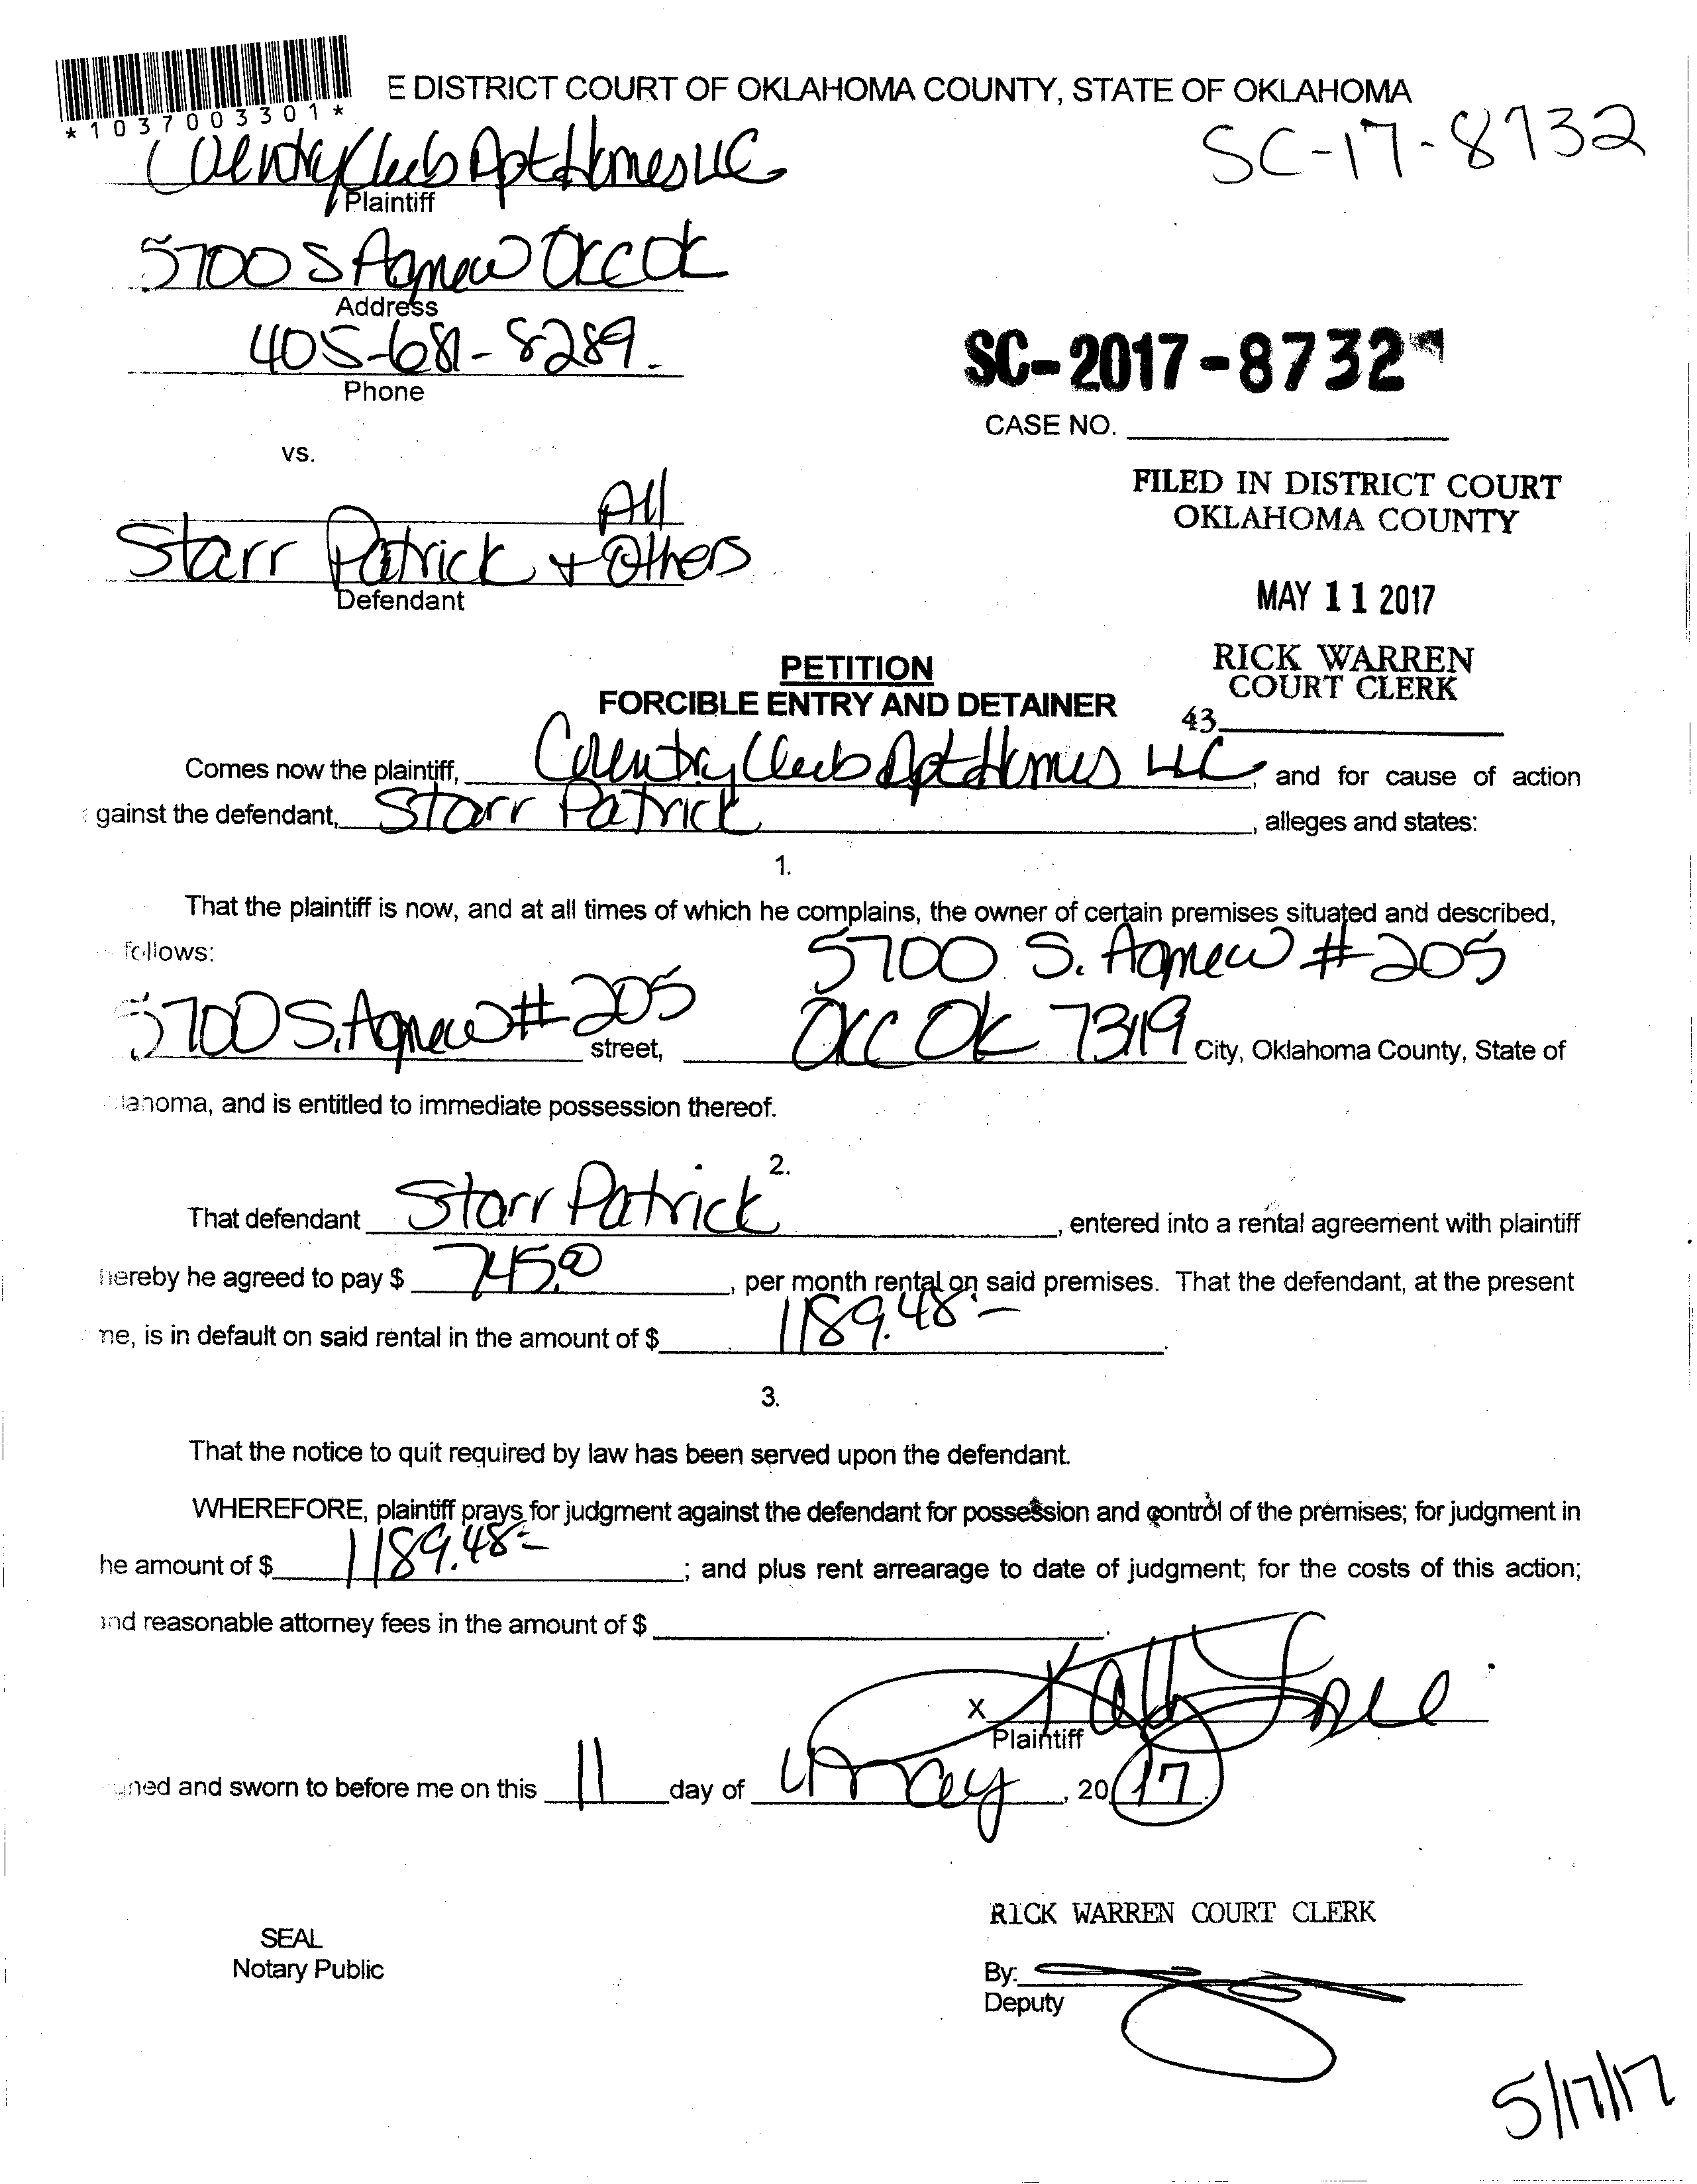 *1037003301*
E DISTRICT COURT OF OKLAHOMA COUNTY, STATE OF OKLAHOMA
SC-17-8732
Country Club Apt Homes LLC
Plaintiff
5700 S Agnew OKC OK
Address
405-681-8289
Phone
SC-2017-8732
CASE NO.
vs.
FILED IN DISTRICT COURT
OKLAHOMA COUNTY
All
Starr Patrick + Others
Defendant
MAY 11 2017
RICK WARREN
COURT CLERK
43
PETITION
FORCIBLE ENTRY AND DETAINER
Comes now the plaintiff, Country Club Apt Homes LLC, and for cause of action
gainst the defendant, Starr Patrick, alleges and states:
1.
That the plaintiff is now, and at all times of which he complains, the owner of certain premises situated and described,
follows:
5700 S. Agnew # 205
5700 S. Agnew # 205 street, OKC OK 73119 City, Oklahoma County, State of
lahoma, and is entitled to immediate possession thereof.
2.
That defendant Starr Patrick, entered into a rental agreement with plaintiff
hereby he agreed to pay $ 745.00, per month rental on said premises. That the defendant, at the present
me, is in default on said rental in the amount of $ 1189.48-.
3.
That the notice to quit required by law has been served upon the defendant.
WHEREFORE, plaintiff prays for judgment against the defendant for possession and control of the premises; for judgment in
he amount of $ 1189.48-; and plus rent arrearage to date of judgment; for the costs of this action;
and reasonable attorney fees in the amount of $ .
X
Plaintiff
ned and sworn to before me on this 11 day of May, 2017.
RICK WARREN COURT CLERK
SEAL
Notary Public
By:
Deputy
5/17/17